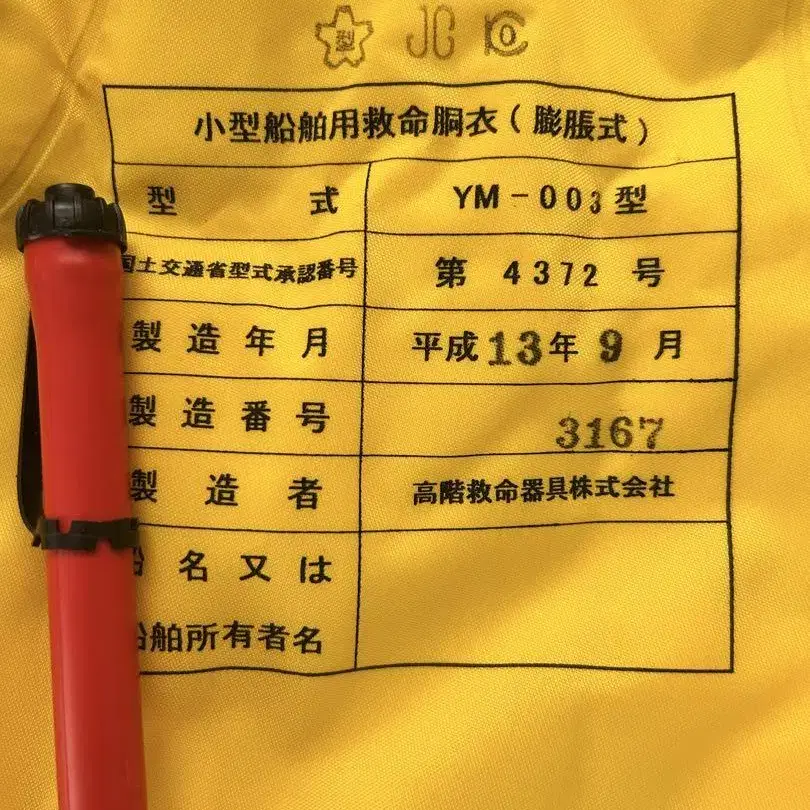 型 JG
小型船舶用救命胴衣(膨脹式)
型式 YM-003型
国土交通省型式承認番号 第4372号
製造年月 平成13年9月
製造番号 3167
製造者 高階救命器具株式会社
船名又は
船舶所有者名